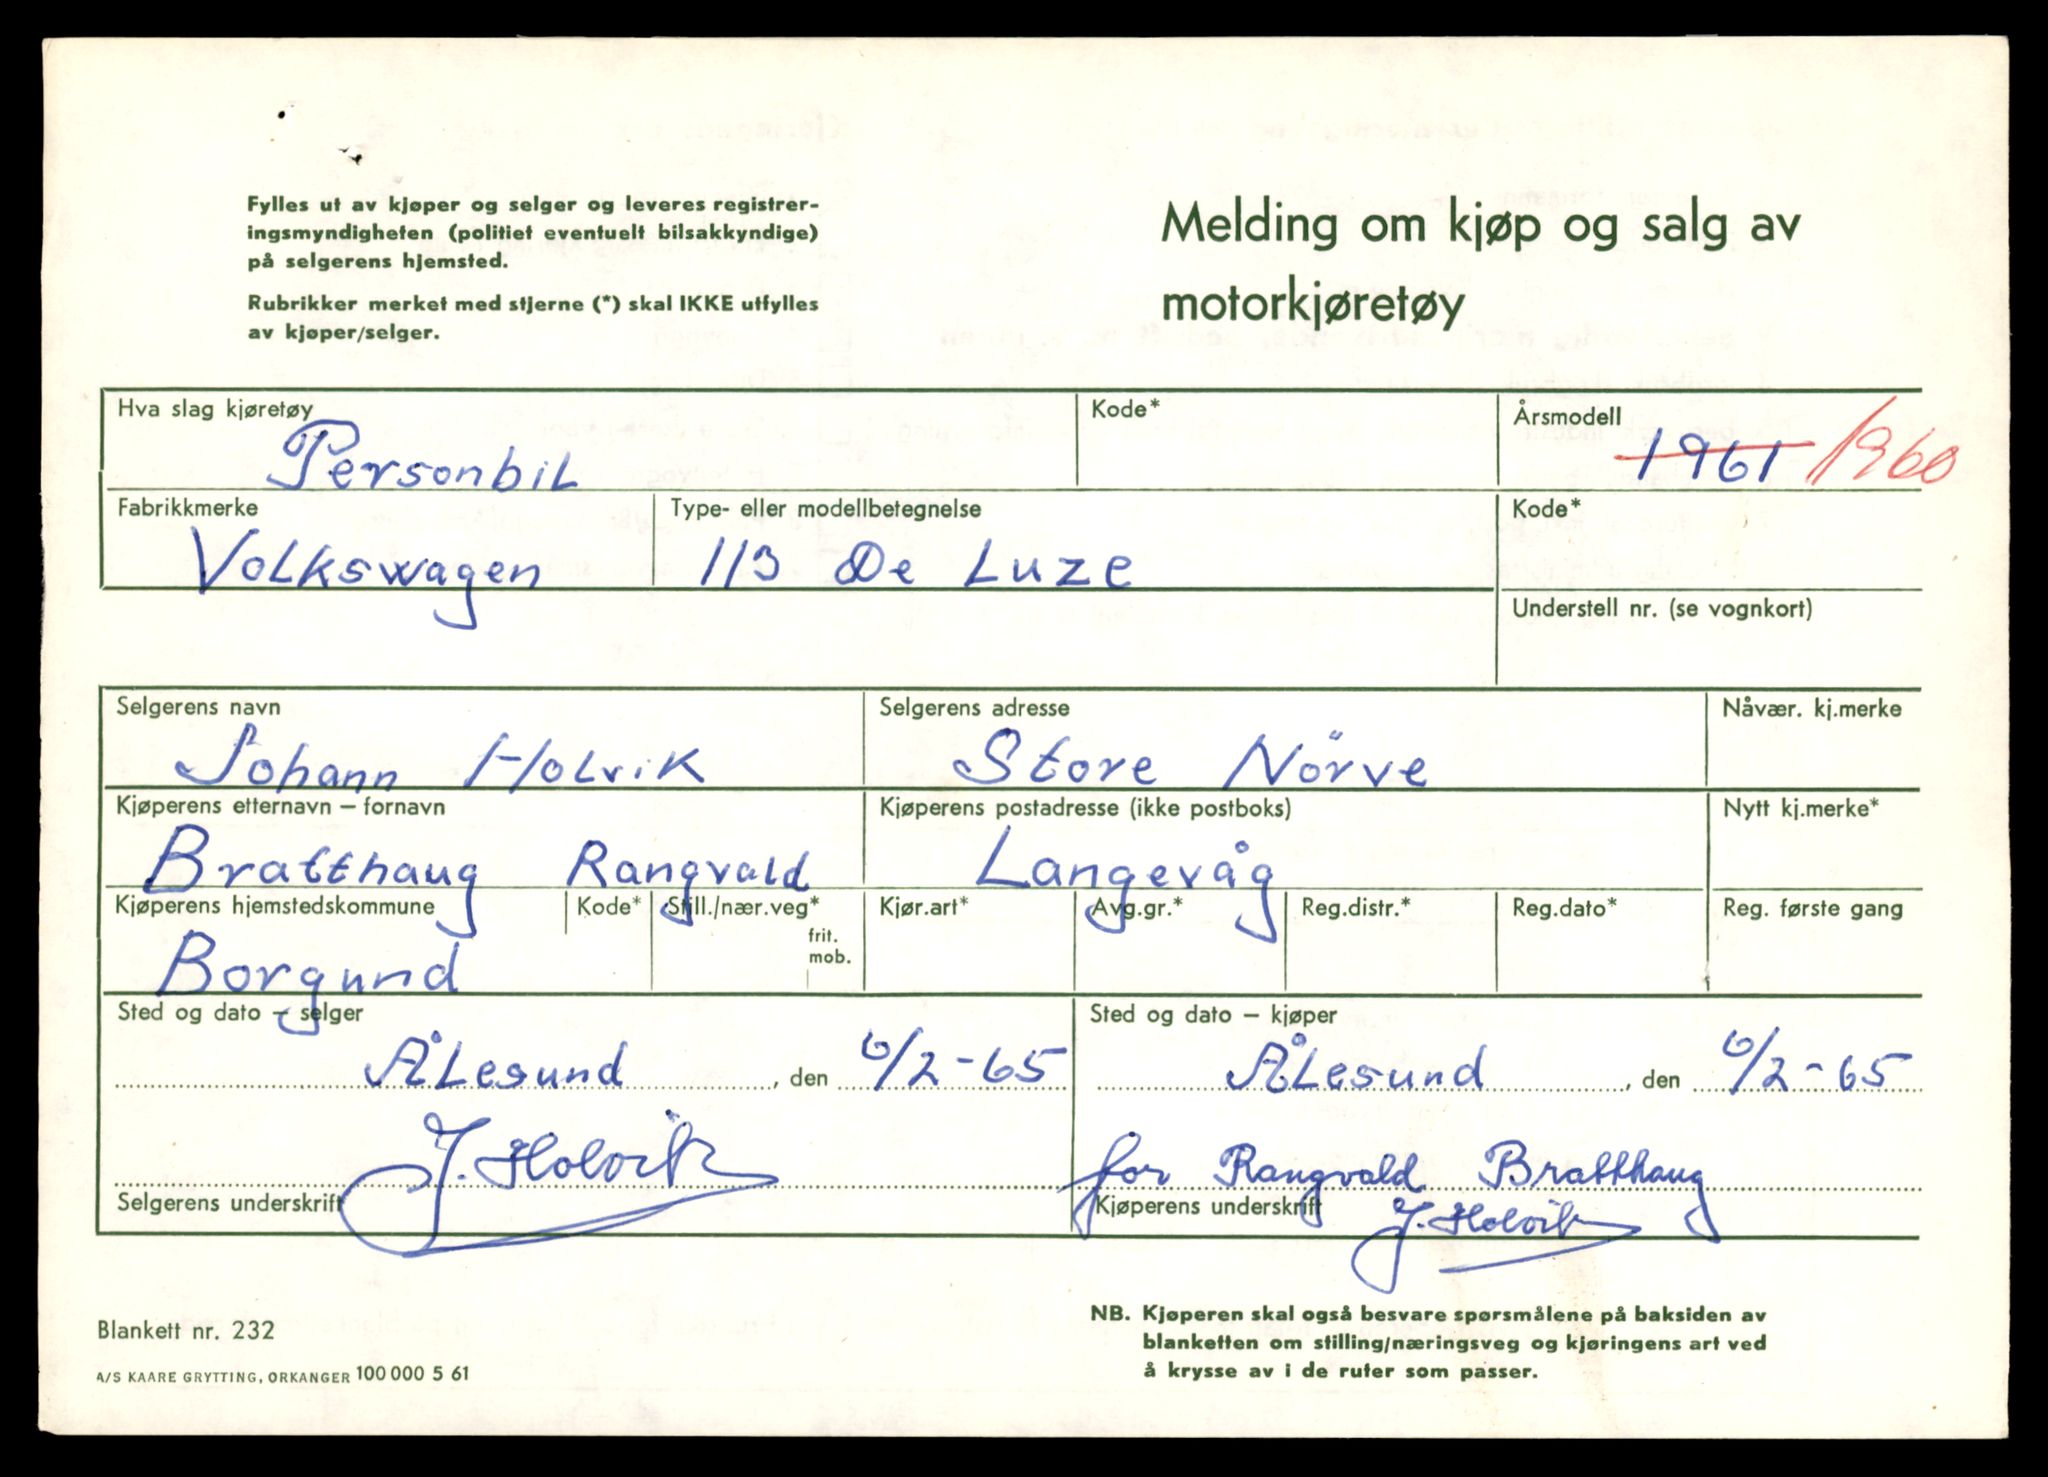 Fylles ut av kjøper og selger og leveres registrer-
ingsmyndigheten (politiet eventuelt bilsakkyndige)
på selgerens hjemsted.
Rubrikker merket med stjerne (*) skal IKKE utfylles
av kjøper/selger.
Melding om kjøp og salg av
motorkjøretøy
Hva slag kjøretøy Kode* Årsmodell
Personbil 1961 1960
Fabrikkmerke Type- eller modellbetegnelse Kode*
Volkswagen 113 De Luze
Understell nr. (se vognkort)
Selgerens navn Selgerens adresse Nåvær. kj.merke
Johann Holvik Store Nörve
Kjøperens etternavn – fornavn Kjøperens postadresse (ikke postboks) Nytt kj.merke*
Bratthaug Rangvald Langevåg
Kjøperens hjemstedskommune Kode* Still./nær.veg* Kjør.art* Avg.gr.* Reg.distr.* Reg.dato* Reg. første gang
frit.
mob.
Borgund
Sted og dato – selger Sted og dato – kjøper
Ålesund, den 6/2-65 Ålesund, den 6/2-65
J. Holvik for Rangvald Bratthaug
Selgerens underskrift Kjøperens underskrift J. Holvik
NB. Kjøperen skal også besvare spørsmålene på baksiden av
blanketten om stilling/næringsveg og kjøringens art ved
å krysse av i de ruter som passer.
Blankett nr. 232
A/S KAARE GRYTTING, ORKANGER 100 000 5 61